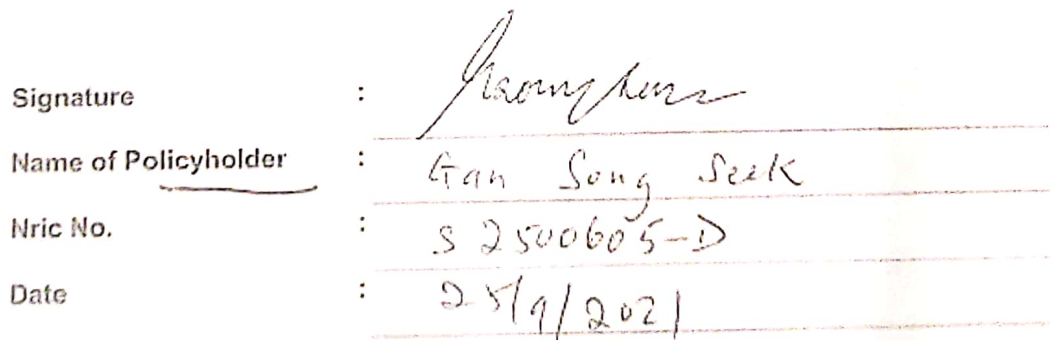 Signature :
Name of Policyholder : Gan Song Seek
Nric No. : S2500605-D
Date : 25/9/2021